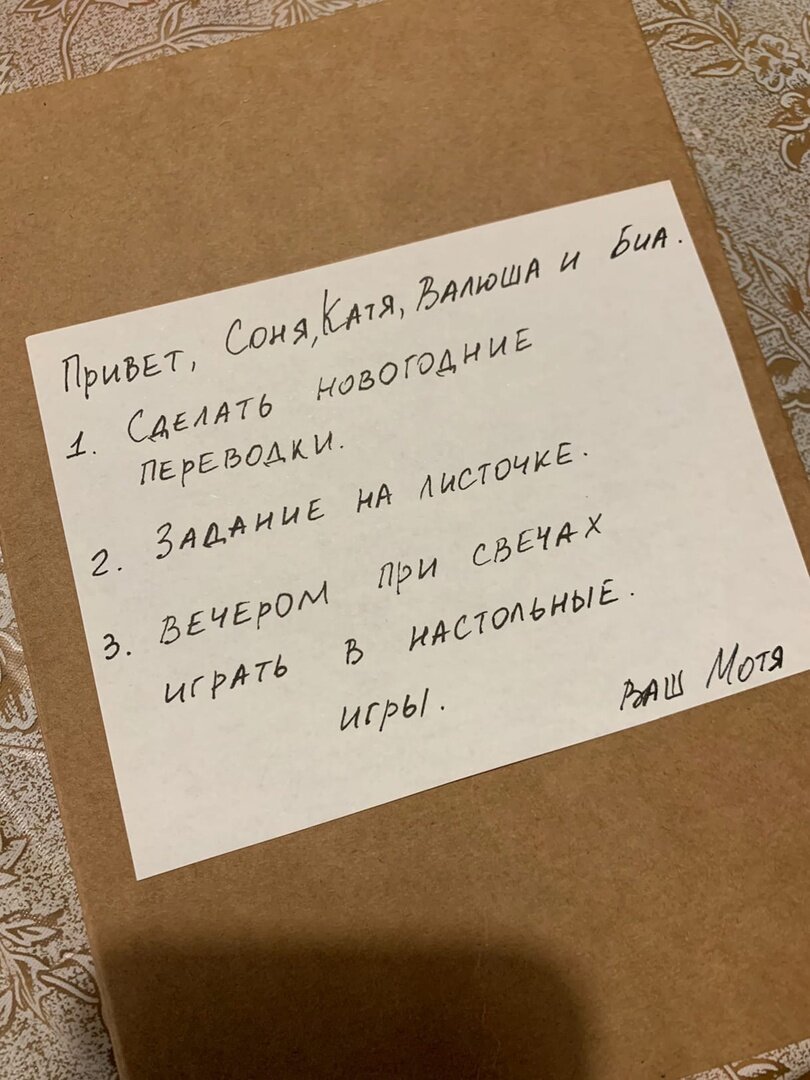 Привет, Соня, Катя, Валюша и Биа.
1. Сделать новогодние
переводки.
2. Задание на листочке.
3. Вечером при свечах
играть в настольные
игры.
Ваш Мотя